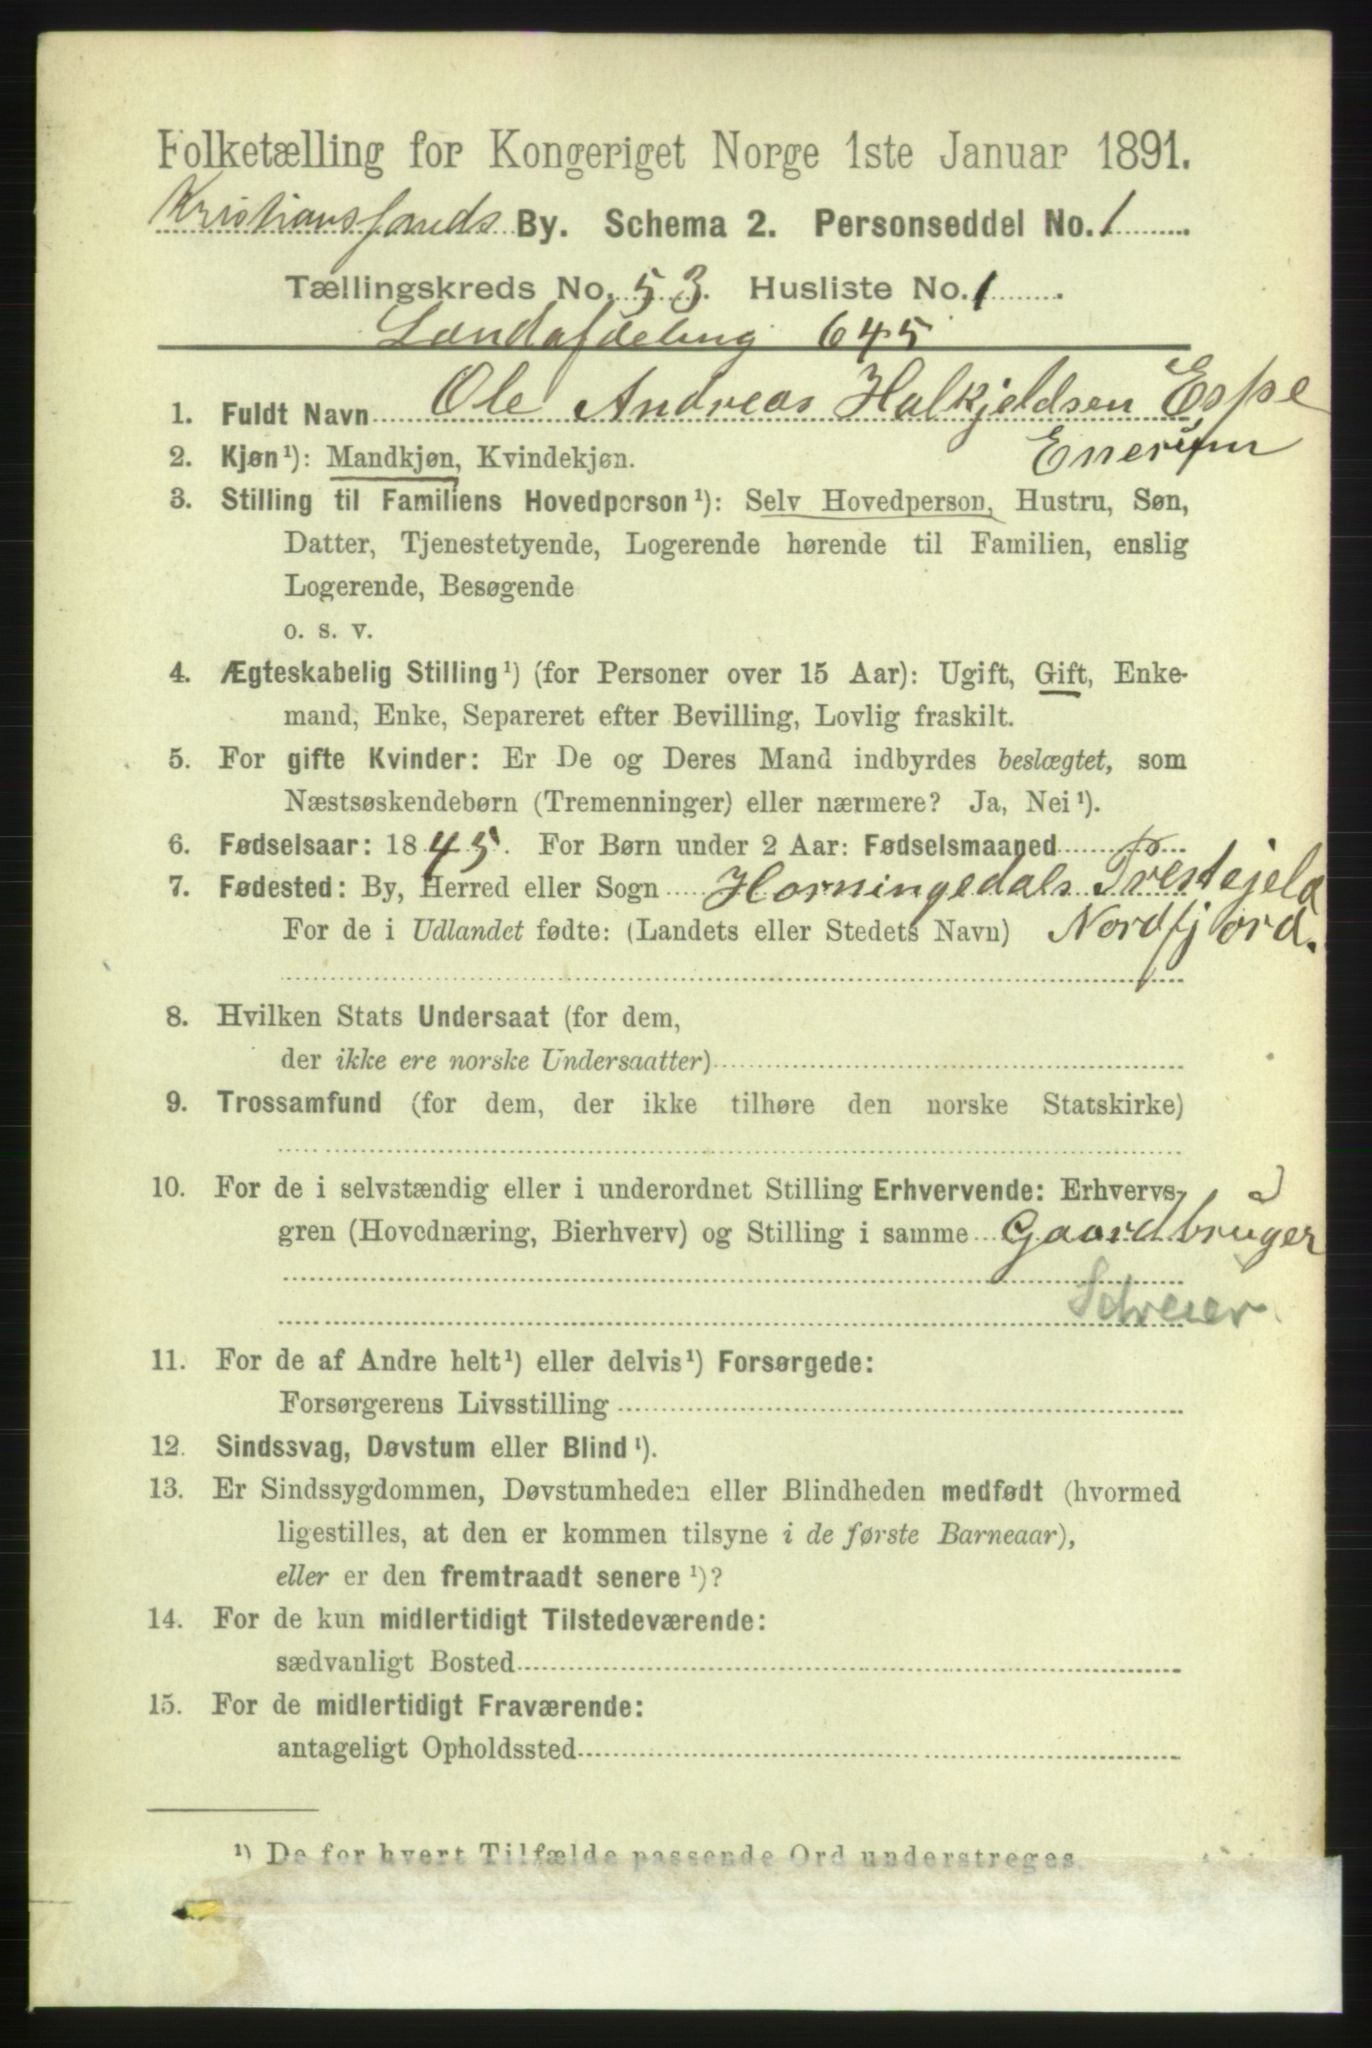 Folketælling for Kongeriget Norge 1ste Januar 1891.
Kristiansunds By. Schema 2. Personseddel No. 1
Tællingskreds No. 53. Husliste No. 1
Landafdeling 645
1. Fuldt Navn Ole Andreas Halkjeldsen Espe
2. Kjøn¹): Mandkjøn, Kvindekjøn.
3. Stilling til Familiens Hovedperson¹): Selv Hovedperson, Hustru, Søn,
Datter, Tjenestetyende, Logerende hørende til Familien, enslig
Logerende, Besøgende
o. s. v.
4. Ægteskabelig Stilling¹) (for Personer over 15 Aar): Ugift, Gift, Enke-
mand, Enke, Separeret efter Bevilling, Lovlig fraskilt.
5. For gifte Kvinder: Er De og Deres Mand indbyrdes beslægtet, som
Næstsøskendebørn (Tremenninger) eller nærmere? Ja, Nei¹).
6. Fødselsaar: 1845. For Børn under 2 Aar: Fødselsmaaned
7. Fødested: By, Herred eller Sogn Horningedals Prestegjeld
For de i Udlandet fødte: (Landets eller Stedets Navn) Nordfjord.
8. Hvilken Stats Undersaat (for dem,
der ikke ere norske Undersaatter)
9. Trossamfund (for dem, der ikke tilhøre den norske Statskirke)
10. For de i selvstændig eller i underordnet Stilling Erhvervende: Erhvervs-
gren (Hovednæring, Bierhverv) og Stilling i samme Gaardbruger
11. For de af Andre helt¹) eller delvis¹) Forsørgede:
Forsørgerens Livsstilling
12. Sindssvag, Døvstum eller Blind¹).
13. Er Sindssygdommen, Døvstumheden eller Blindheden medfødt (hvormed
ligestilles, at den er kommen tilsyne i de første Barneaar),
eller er den fremtraadt senere¹)?
14. For de kun midlertidigt Tilstedeværende:
sædvanligt Bosted
15. For de midlertidigt Fraværende:
antageligt Opholdssted
¹) De for hvert Tilfælde passende Ord understreges.